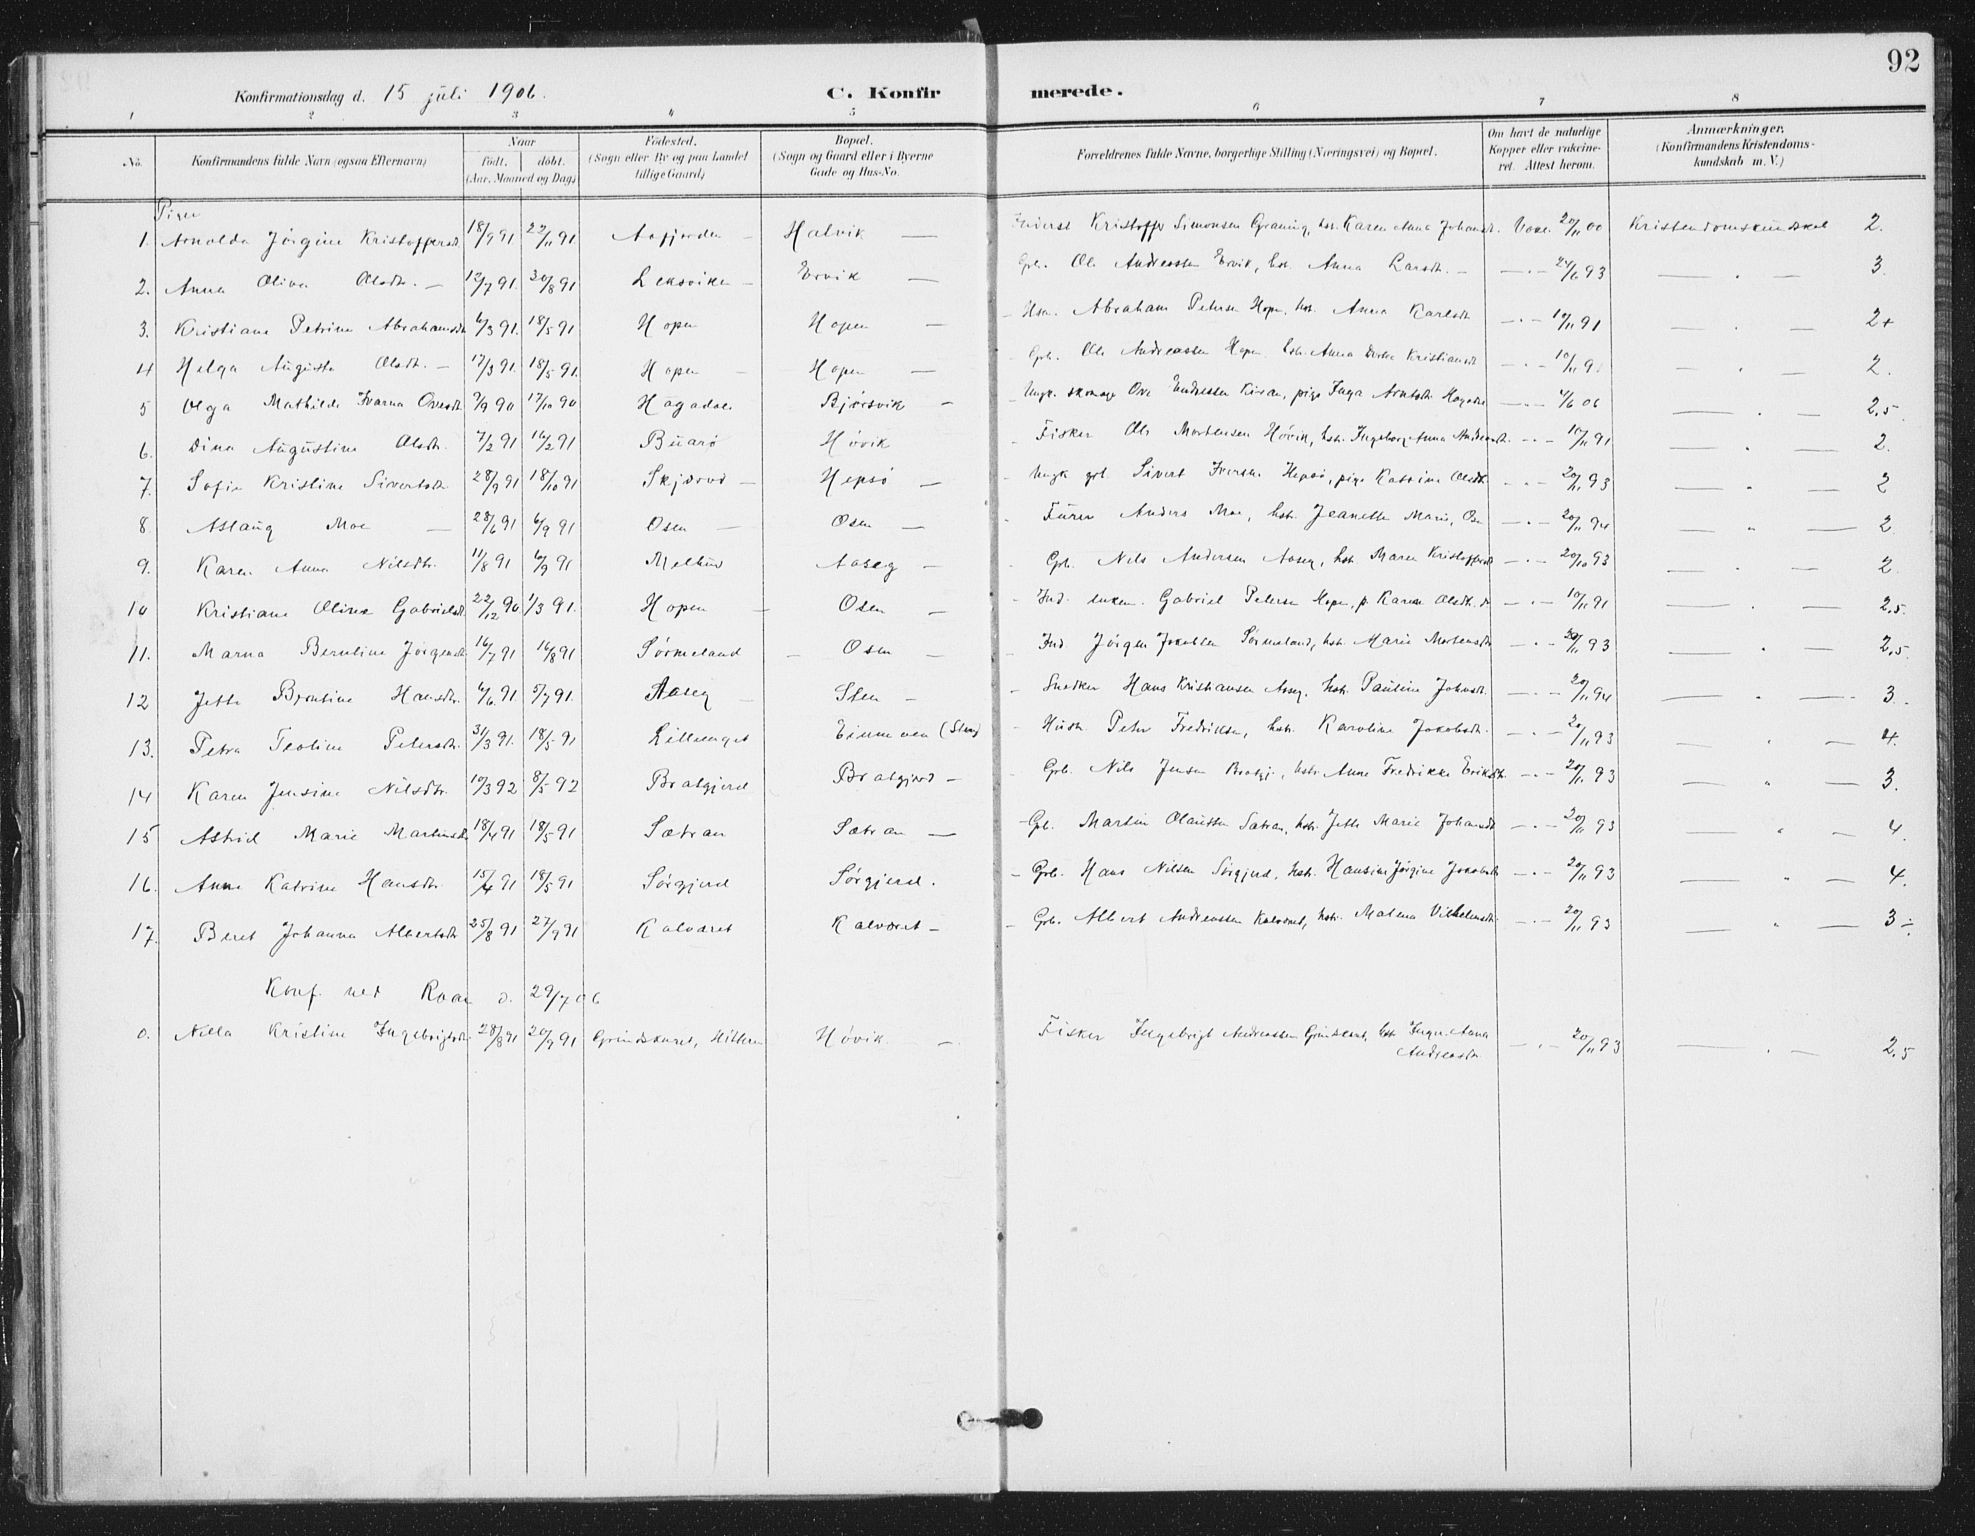 92
Konfirmationsdag d. 15 juli 1906. C. Konfirmerede.
1 2 3 4 5 6 7 8
No. Konfirmandens fulde Navn (ogsaa Efternavn) Naar født. døbt. (Aar, Maaned og Dag) Fødested. (Sogn eller By og paa Landet tillige Gaard) Bopæl. (Sogn og Gaard eller i Byerne Gade og Hus-No. Forældrenes fulde Navne, borgerlige Stilling (Næringsvei) og Bopæl. Om havt de naturlige Kopper eller vakcineret. Attest herom. Anmærkninger. (Konfirmandens Kristendomskundskab m. V.)
Piger
1. Arnolda Jørgine Kristoffersdt. 18/9 91 22/11 91. Aafjorden – Halvik — Kristoffer Simonsen Graning, hst. Karen Anna Johansdt. Vakc. 20/11 00 Kristendomskundskab 2.
2. Anna Oliva Olsdt. – 12/7 91. 30/8 91 Leksviken – Ervik — Grb. Ole Andreassen Ervik, hst. Anna Larsdt. – — . — 24/6 93 — " — 3.
3. Kristiane Petrine Abrahamsdt 6/3 91. 18/5 91 Hopen Hopen — Hsm. Abraham Petersen Hopen, hst. Anna Karlsdt — . — 10/11 91 — " — 2+
4 Helga Augusta Olsdt. – 17/3 91. 18/5 91. Hopen – Hopen — Grb. Ole Andreassen Hopen, hst. Anna Kristiansdt — . — 10/11 91 — " — 2.
5 Olga Mathilde Ivarna Ovesdt 7/9 90 17/10 90 Hagadal Bjørsvik – Ungk. skomag. Ove Endressen Kiran, pige Inga Arntsdt. — . — 4/6 06 — " — 2,5
6. Dina Augustine Olsdt. 7/2 91 16/2 91 Buarø Høvik – Fisker Ole Mortensen Høvik, hst. Ingeborg Anna Andersdt. — . — 10/11 91 — " — 2.
7. Sofie Kristine Sivertsdt 28/9 91 18/10 91 Skjærvø – Hepsø — Ungk. grb. Sivert Iversen Hepsø, pige Katrine Olsdt. — . — 20/11 93 — " — 2
8 Aslaug Moe — 28/6 91 6/9 91 Osen — Osen — Furer Anders Moe, hst. Jeanette Marie, Osen — . — 20/11 94 — " — 2
9. Karen Anna Nilsdt. 11/8 91 6/9 91 Melhus Aaseg — Grb. Nils Andersen Aaseg, hst. Maren Kristoffersdt — . — 20/10 93 — " — 2.
10 Kristiane Oline Gabrielsdt. 22/12 90. 1/3 91. Hopen – Osen — Ind. enkem. Gabriel Petersen Hopen, p. Karen Olsdt. — . — 10/11 91 — " — 2,5
11. Marna Berntine Jørgensdt 16/7 91 16/8 91 Sørmeland – Osen — Ind. Jørgen Jakobsen Sørmeland, hst. Marie Mortensdt — . — 20/11 93 — " — 2,5
12 Jette Berntine Hansdt. 6/6 91. 5/7 91. Aaseg – Sten – Snedker Hans Kristiansen Aaseg, hst. Pauline Johnsdt. — . — 20/11 94 — " — 3.
13. Petra Teoline Petersdt. 31/3 91. 18/5 91 Lillesaget (Sten) Husm. Peter Fredriksen, hst. Karoline Jakobsdt. — . — 20/11 93 — " — 4.
14 Karen Jensine Nilsdt. 10/3 92 8/5 92 Bratgjerd Bratgjerd – Grb. Nils Jensen Bratgj., hst. Anne Fredrikke Eriksdt. — . — 20/11 93 — " — 3.
15 Astrid Marie Martinsdt 18/4 91 18/5 91 Sætran Sætran — Grb. Martin Olaussen Sætran, hst. Jette Marie Johansdt — . — 20/11 93 — " — 4.
16. Anne Katrine Hansdt. 15/4 91 18/5 91 Sørgjerd Sørgjerd. – Grb. Hans Nilsen Sørgjerd, hst. Hansine Jørgine Jakobsdt — . — 20/11 93 — " — 4.
17. Beret Johanna Albertsdt 25/8 91 27/9 91 Kalværet Kalværet – Grb. Albert Andreassen Kalværet, hst. Malena Vilhelmsdt. — . — 20/11 93 — " — 3 ÷
Konf. ved Roan d. 29/7 06
0. Nella Kristine Ingebrigtsdt. 28/8 91 20/9 91 Grindskaret, Hitteren Høvik – Fisker Ingebrigt Andreassen Grindskaret, hst. Inger Anna Andreasdt. — . — 20/11 93 — " — 2,5